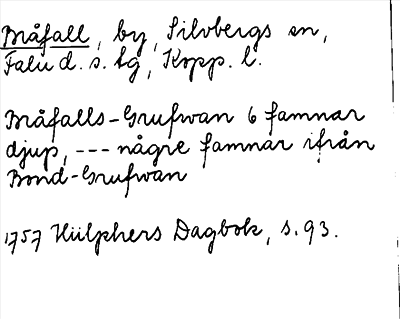 Bråfall, by, Silvbergs sn,
Falu d. s. lg, Kopp. l.
Bråfalls-Grufwan 6 famnar
djup, --- några famnar ifrån
Bond-Grufwan
1757 Hülphers Dagbok, s. 93.